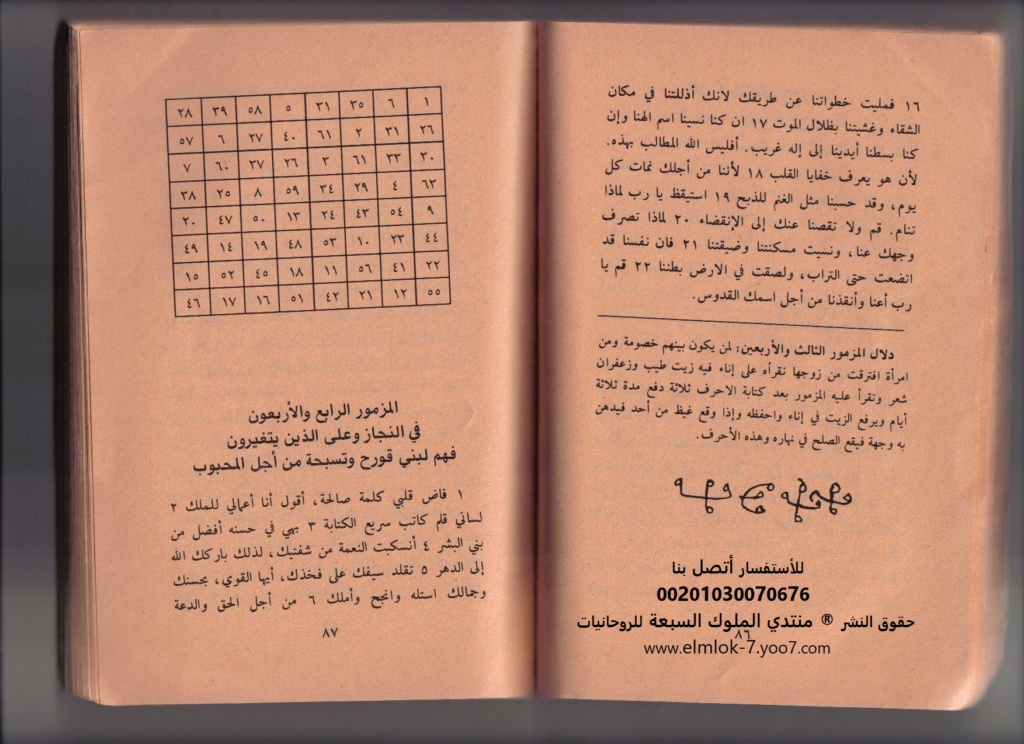 ١٦ فمليت خطواتنا عن طريقك لانك أذللتنا في مكان
الشقاء وغشيتنا بظلال الموت ١٧ ان كنا نسينا اسم الهنا وإن
كنا بسطنا أيدينا إلى إله غريب. أفليس الله المطالب بهذه.
لأن هو يعرف خفايا القلب ١٨ لأننا من أجلك نمات كل
يوم، وقد حسبنا مثل الغنم للذبح ١٩ استيقظ يا رب لماذا
تنام. قم ولا تقصنا عنك إلى الإنقضاء ٢٠ لماذا تصرف
وجهك عنا، ونسيت مسكنتنا وضيقتنا ٢١ فان نفسنا قد
اتضعت حتى التراب، ولصقت في الارض بطننا ٢٢ قم يا
رب أعنا وأنقذنا من أجل اسمك القدوس.
دلال المزمور الثالث والأربعين: لمن يكون بينهم خصومة ومن
امرأة افترقت من زوجها نقرأه على إناء فيه زيت طيب وزعفران
شعر وتقرأ عليه المزمور بعد كتابة الاحرف ثلاثة دفع مدة ثلاثة
أيام ويرفع الزيت في إناء واحفظه وإذا وقع غيظ من أحد فيدهن
به وجهة فيقع الصلح في نهاره وهذه الأحرف.
للأستفسار أتصل بنا
00201030070676
حقوق النشر ® منتدي الملوك السبعة للروحانيات
٨٦
www.elmlok-7.yoo7.com
١ ٦ ٣٥ ٣١ ٥ ٥٨ ٣٩ ٢٨
٢٦ ٣١ ٢ ٦١ ٤٠ ٢٧ ٦ ٥٧
٣٠ ٣٣ ٦١ ٣ ٢٦ ٣٧ ٦٠ ٧
٦٣ ٤ ٢٩ ٣٤ ٥٩ ٨ ٢٥ ٣٨
٩ ٥٤ ٤٣ ٢٤ ١٣ ٥٠ ٤٧ ٢٠
٤٤ ٢٣ ١٠ ٥٣ ٤٨ ١٩ ١٤ ٤٩
٢٢ ٤١ ٥٦ ١١ ١٨ ٤٥ ٥٢ ١٥
٥٥ ١٢ ٢١ ٤٢ ٥١ ١٦ ١٧ ٤٦
المزمور الرابع والأربعون
في النجاز وعلى الذين يتغيرون
فهم لبني قورح وتسبحة من أجل المحبوب
١ فاض قلبي كلمة صالحة، أقول أنا أعمالي للملك ٢
لساني قلم كاتب سريع الكتابة ٣ بهي في حسنه أفضل من
بني البشر ٤ أنسكبت النعمة من شفتيك، لذلك باركك الله
إلى الدهر ٥ تقلد سيفك على فخذك، أيها القوي، بحسنك
وجمالك استله وانجح وأملك ٦ من أجل الحق والدعة
٨٧